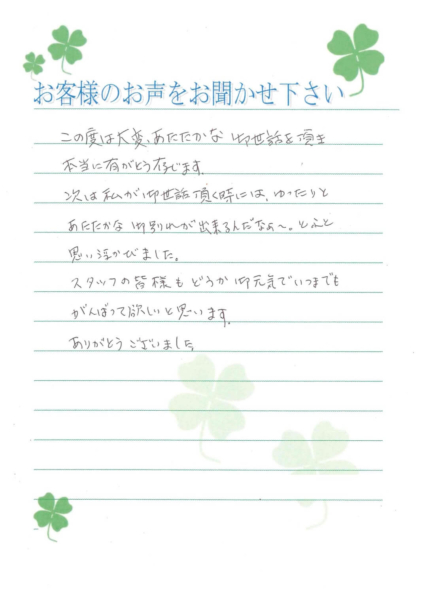 お客様のお声をお聞かせ下さい
この度は大変、あたたかな御世話を頂き
本当に有がとう存じます。
次は私が御世話頂く時には、ゆったりと
あたたかな御別れが出来るんだなぁ〜。とふと
思い浮かびました。
スタッフの皆様もどうか御元気でいつまでも
がんばって欲しいと思います。
ありがとうございました